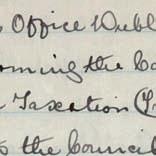 Office Dubl
orming the Co
Taxation (
the Council